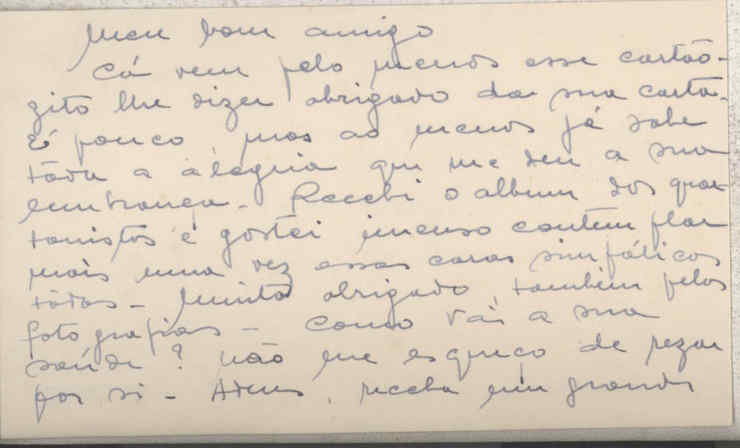 Meu bom amigo
Cá vem pelo menos esse cartão-
zito lhe dizer obrigado da sua carta.
É pouco, mas ao menos já sabe
tôda a alegria que me deu a sua
lembrança. Recebi o album dos quar-
tanistas e gostei imenso contemplar
mais uma vez essas caras simpáticas
tôdas - Muito obrigado, tambem pelas
fotografias - Como vai a sua
saúde? Não me esqueço de rezar
por si - Adeus, receba um grande